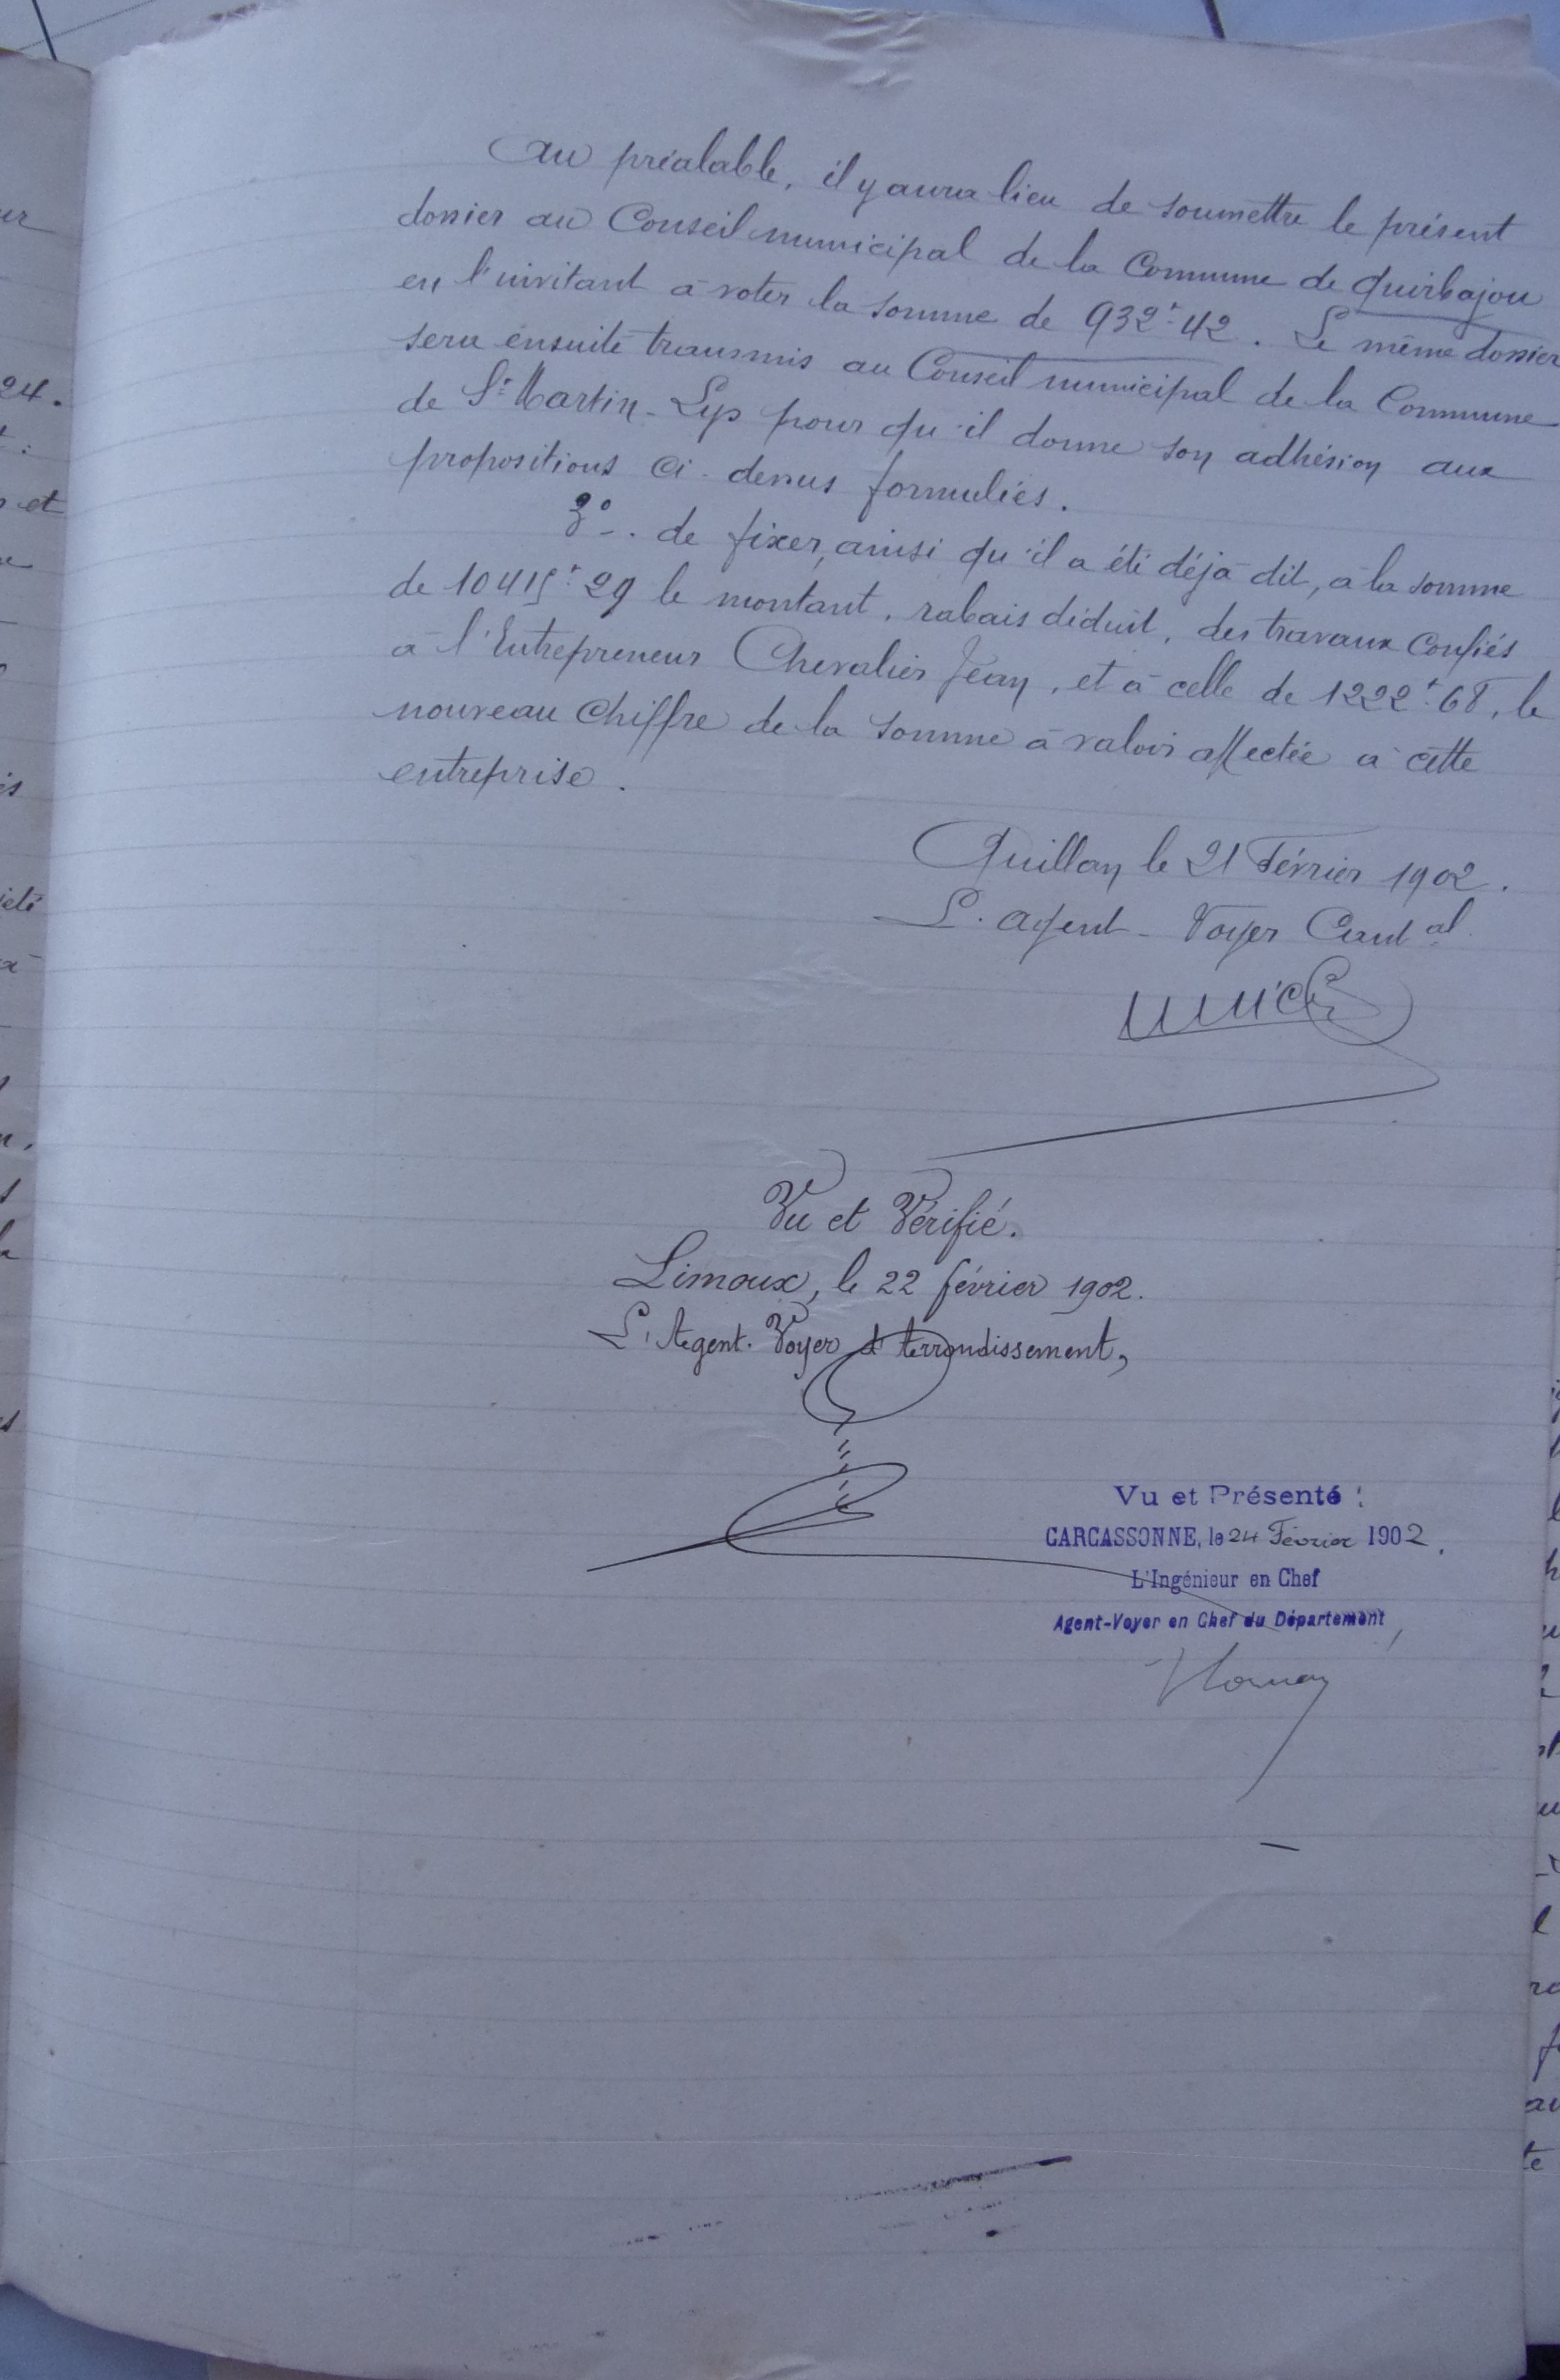 Au préalable, il y aura lieu de soumettre le présent
dossier au Conseil municipal de la Commune de Quirbajou
en l'invitant à voter la somme de 932f.42. Le même dossier
sera ensuite transmis au Conseil municipal de la Commune
de St Martin-Lys pour qu'il donne son adhésion aux
propositions ci-dessus formulées.
3°-. de fixer, ainsi qu'il a été déjà dit, à la somme
de 10415f.29 le montant, rabais déduit, des travaux confiés
à l'Entrepreneur Chevalier Jean, et à celle de 1222f.68, le
nouveau chiffre de la somme à valoir affectée à cette
entreprise.
Quillan le 21 Février 1902.
L'agent-Voyer Cantal
Vu et Vérifié.
Limoux, le 22 février 1902.
L'Agent-Voyer d'Arrondissement,
Vu et Présenté :
CARCASSONNE, le 24 Février 1902.
L'Ingénieur en Chef
Agent-Voyer en Chef du Département,